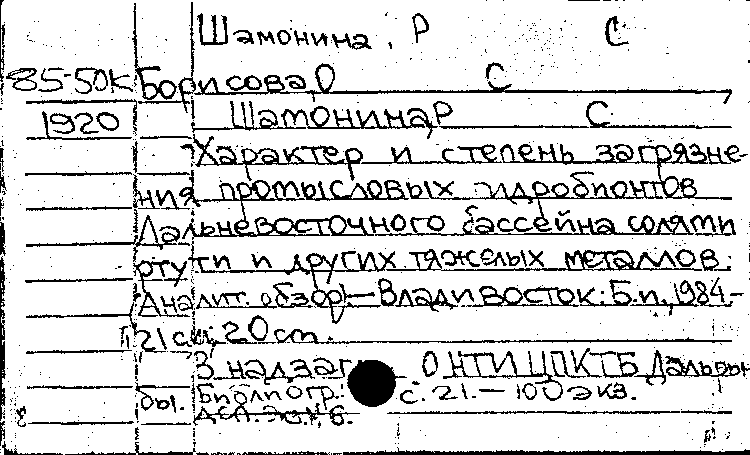 Шамонина, Р С
85-50К Борисова, О С
1920 Шамонина, Р С
Характер и степень загрязне-
ния промысловых гидробионтов
Дальневосточного бассейна солями
ртути и других тяжелых металлов.
(Аналит. обзор).—Владивосток: Б.и., 1984.-
21 с.; 20 см.
В надзаг.: ОНТИ ЦПКТБ Дальры
бы. Библиогр.: с. 21. — 100 экз.